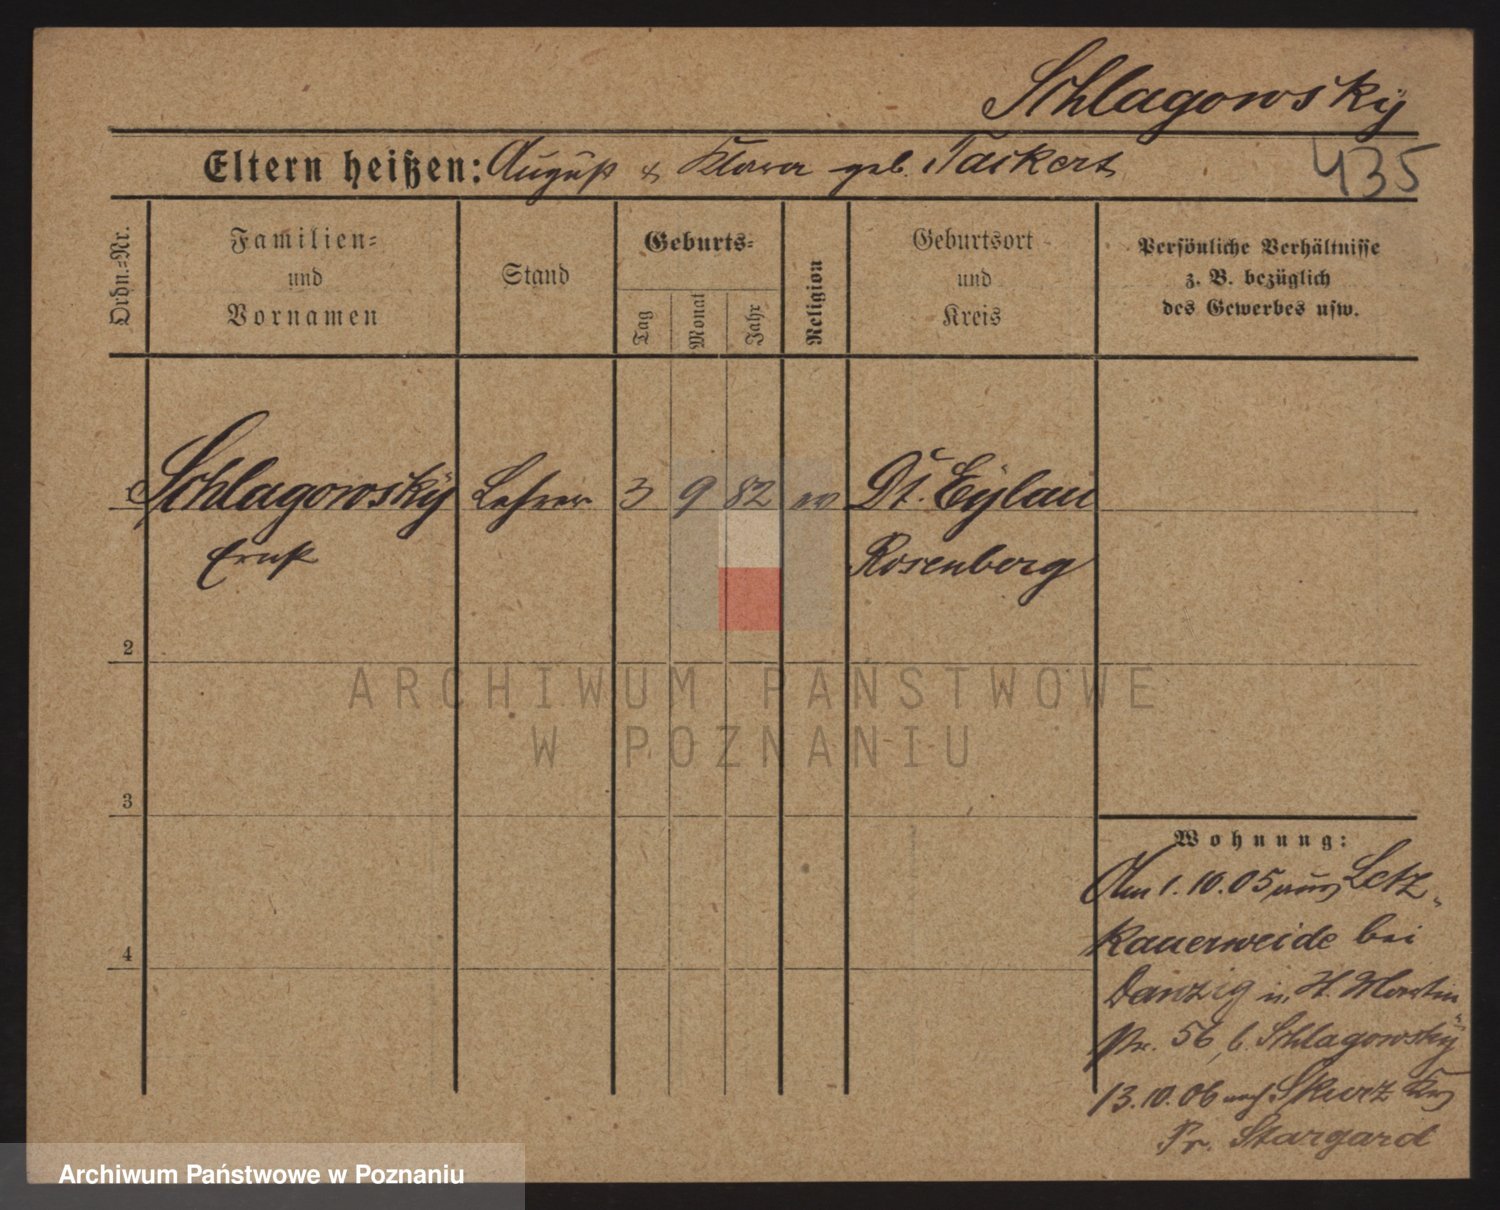 Schlagowsky
Eltern heißen: August & Klara geb. Tackert
435
Ordn.=Nr.
Familien=
und
Vornamen
Stand
Geburts=
Tag
Monat
Jahr
Religion
Geburtsort
und
Kreis
Persönliche Verhältnisse
z. B. bezüglich
des Gewerbes usw.
1 Schlagowsky Lehrer 3 9 82 ev Dt. Eylau
Ernst Rosenberg
2
3
4
Wohnung:
Am 1. 10. 05 aus Letz-
kauerweide bei
Danzig n. St. Martin
str. 56, b. Schlagowsky
13. 10. 06 nach Skurz Krs
Pr. Stargard
ARCHIWUM PAŃSTWOWE
W POZNANIU
Archiwum Państwowe w Poznaniu